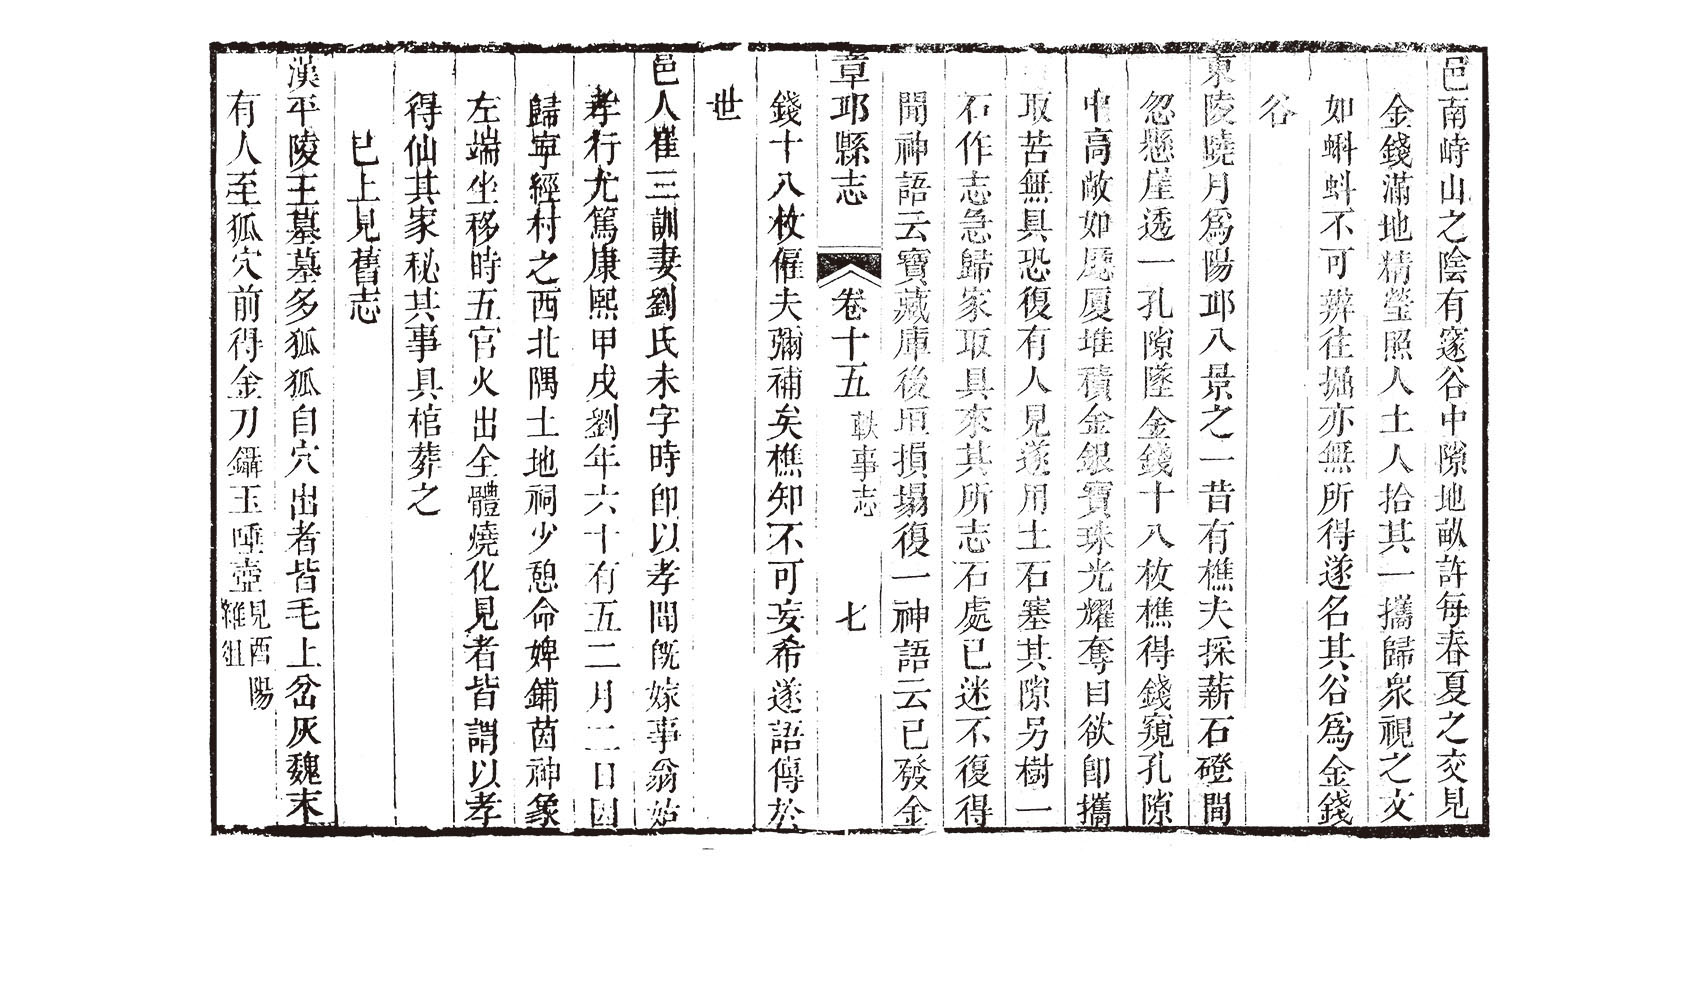 邑南峙山之陰有篴谷中隙地畝許每春夏之交見
金錢滿地精瑩照人土人拾其一攜歸衆視之文
如蝌蚪不可辨往掘亦無所得遂名其谷爲金錢
谷
東陵曉月爲陽邱八景之一昔有樵夫採薪石磴間
忽懸崖透一孔隙墜金錢十八枚樵得錢窺孔隙
中高敞如廈堆積金銀寶珠光耀奪目欲卽攜
取苦無具恐復有人見遂用土石塞其隙另樹一
石作志急歸家取具來其所志石處已迷不復得
聞神語云寶藏庫後垣損塌復一神語云已發金
章邱縣志 卷十五 軼事志 七
錢十八枚僱夫彌補矣樵知不可妄希遂語傳於
世
邑人崔三訓妻劉氏未字時卽以孝聞旣嫁事翁姑
孝行尤篤康熙甲戌劉年六十有五二月二日因
歸寧經村之西北隅土地祠少憩命婢鋪茵神象
左端坐移時五官火出全體燒化見者皆謂以孝
得仙其家秘其事具棺葬之
已上見舊志
漢平陵王墓墓多狐狐自穴出者皆毛上坌灰魏末
有人至狐穴前得金刀鑷玉唾壺見酉陽
雜俎